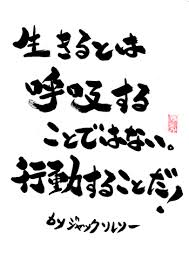 生きるとは
呼吸する
ことではない。
行動することだ!
by ジャックルソー